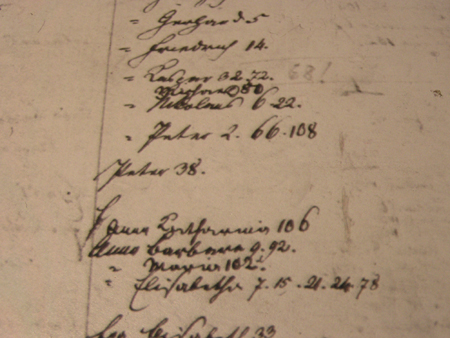 " Gerhard 5
" Friedrich 14.
" Casper 32. 72. 68!
Michael 80
" Nikolaus 6. 22.
" Peter 2. 66. 108
Peter 38.
Anna Catharina 106
Anna Barbara 9. 92.
" Maria 102.
" Elisabetha 7. 15. 21. 24. 78
Elisabeth 33